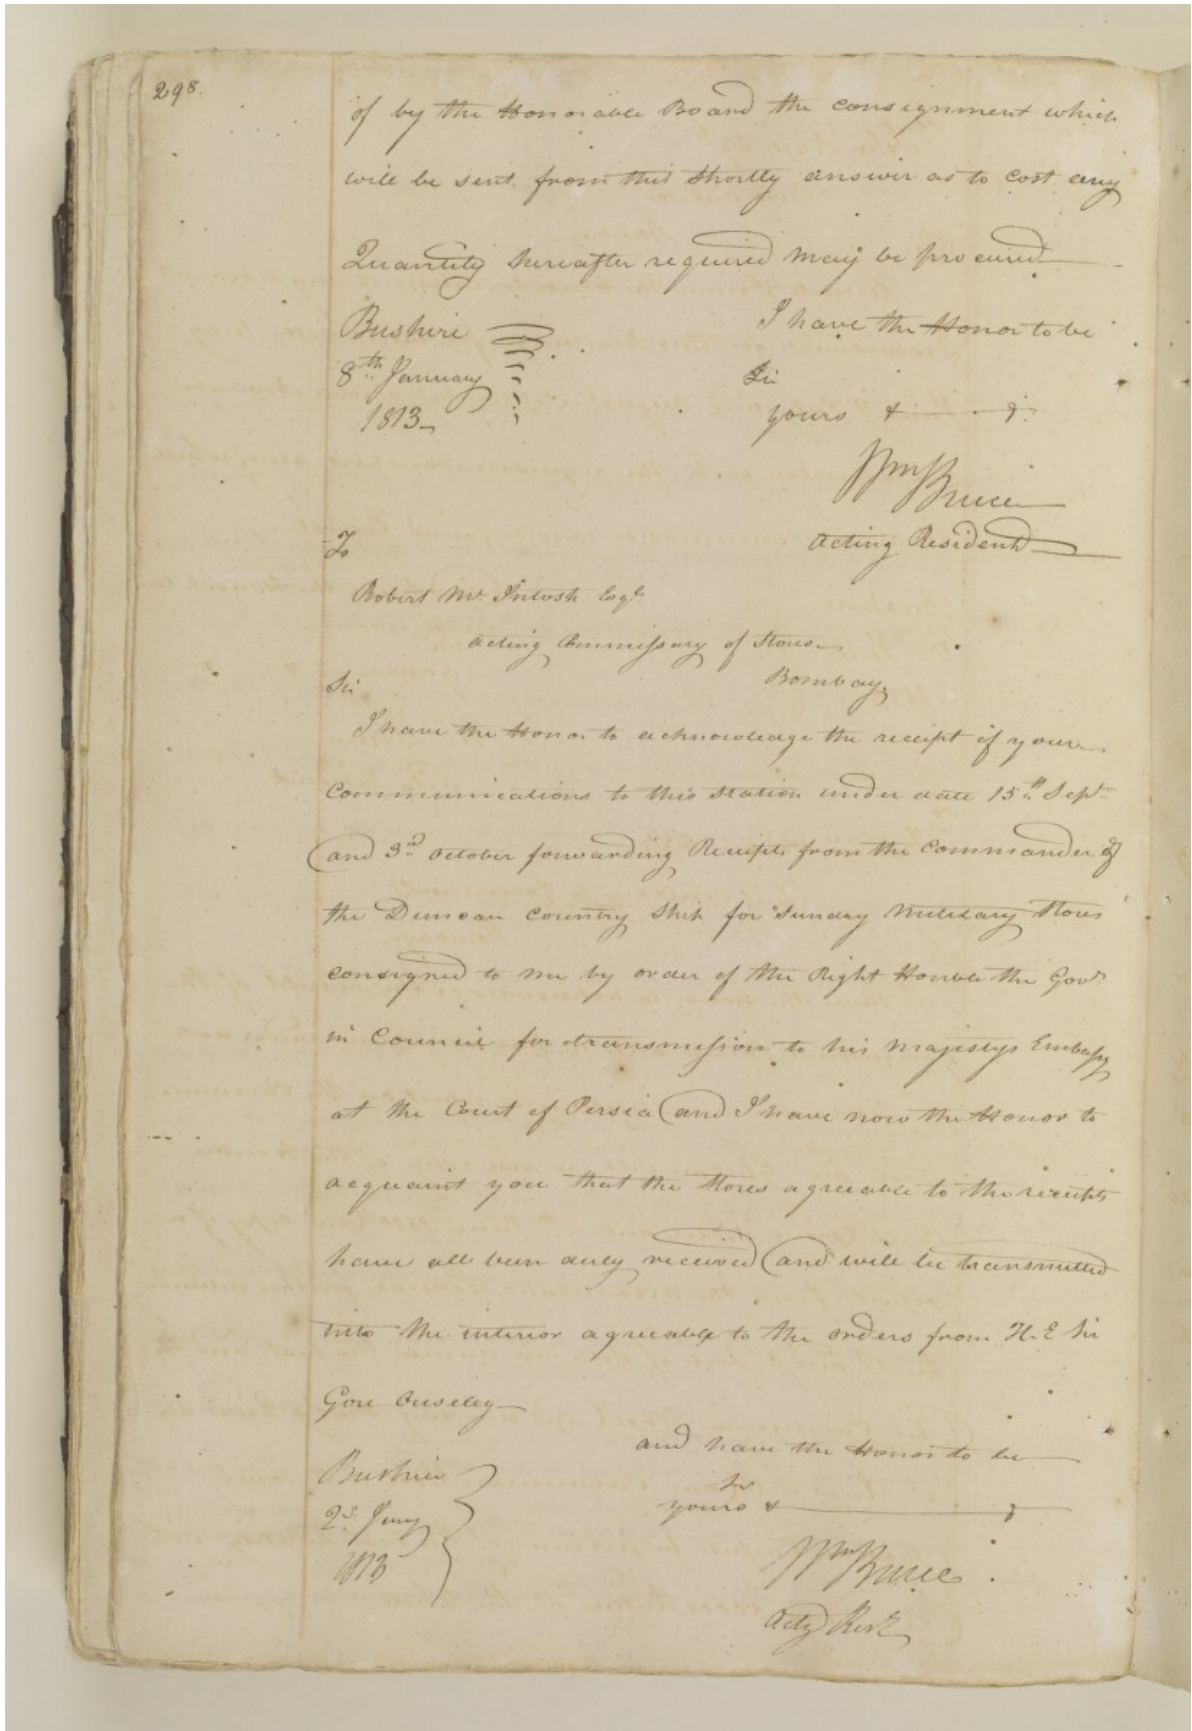 298.
of by the Honorable Board the consignment which
will be sent from this shortly answer as to cost any
Quantity hereafter required may be procured
Bushire
I have the Honor to be
8th January
Sir
1813
yours & &.
Wm Bruce
Acting Resident
To
Robert Mc Intosh Esqr.
Acting Commissary of Stores
Bombay
Sir
I have the Honor to acknowledge the receipt of your
Communications to this station under date 15th Sept.
and 3rd October forwarding Receipts from the Commander of
the Duncan Country Ship for Sunday Military Stores
consigned to me by order of the Right Honble the Govr.
in Council for transmission to his Majestys Embassy
at the Court of Persia and I have now the Honor to
acquaint you that the Stores agreeable to the receipts
have all been duly received and will be transmitted
into the interior agreeable to the orders from H.E Sir
Gore Ouseley
and have the Honor to be
Bushire
Sir
yours & &
2d. Jany
1813
Wm Bruce
Actg Rest